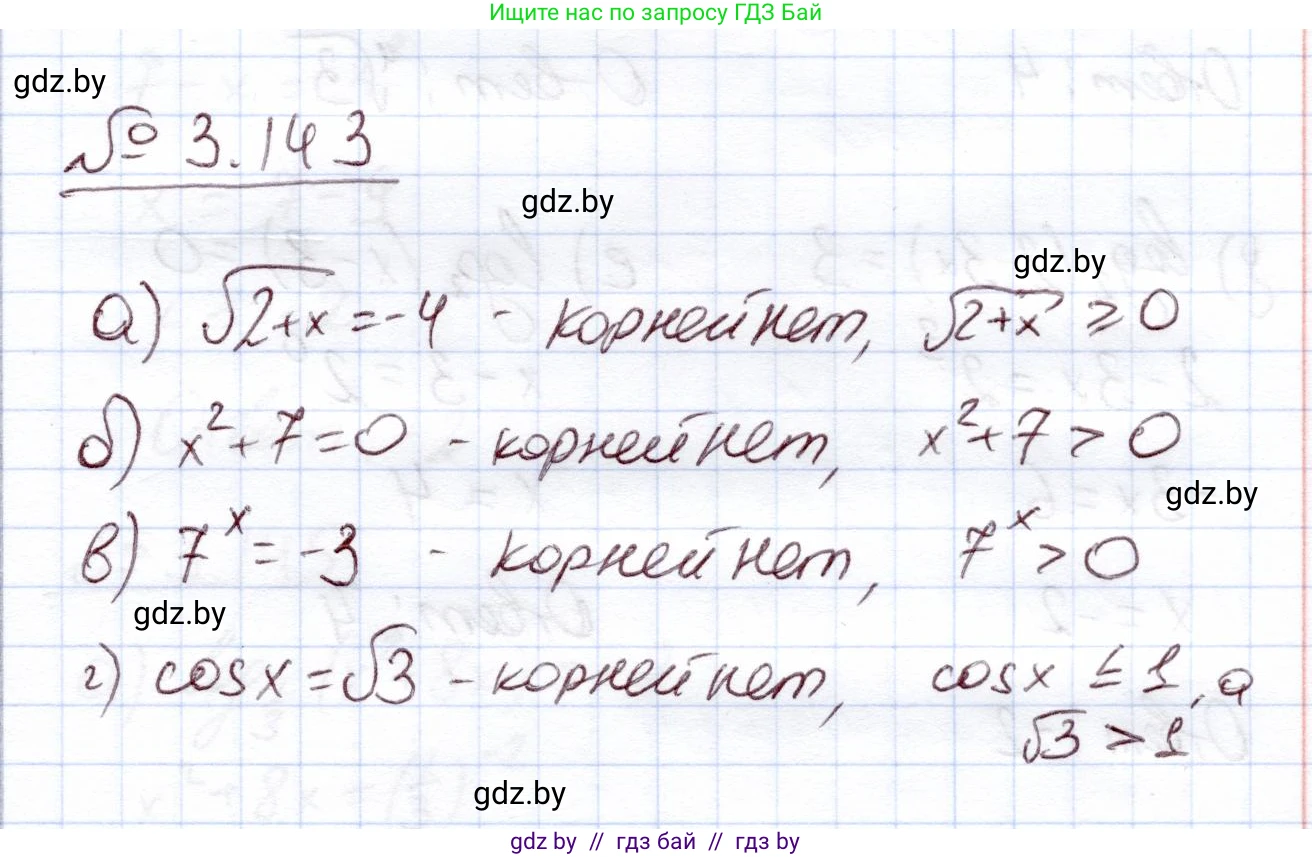 Ищите нас по запросу ГДЗ Бай
gdz.by
№ 3.143
gdz.by
gdz.by
а) √2+x = -4 - корней нет, √2+x ≥ 0
б) x²+7=0 - корней нет, x²+7 > 0
gdz.by
в) 7ˣ = -3 - корней нет, 7ˣ > 0
gdz.by
г) cosx = √3 - корней нет, cosx ≤ 1, а
√3 > 1
gdz.by
gdz.by // гдз бай // гдз by